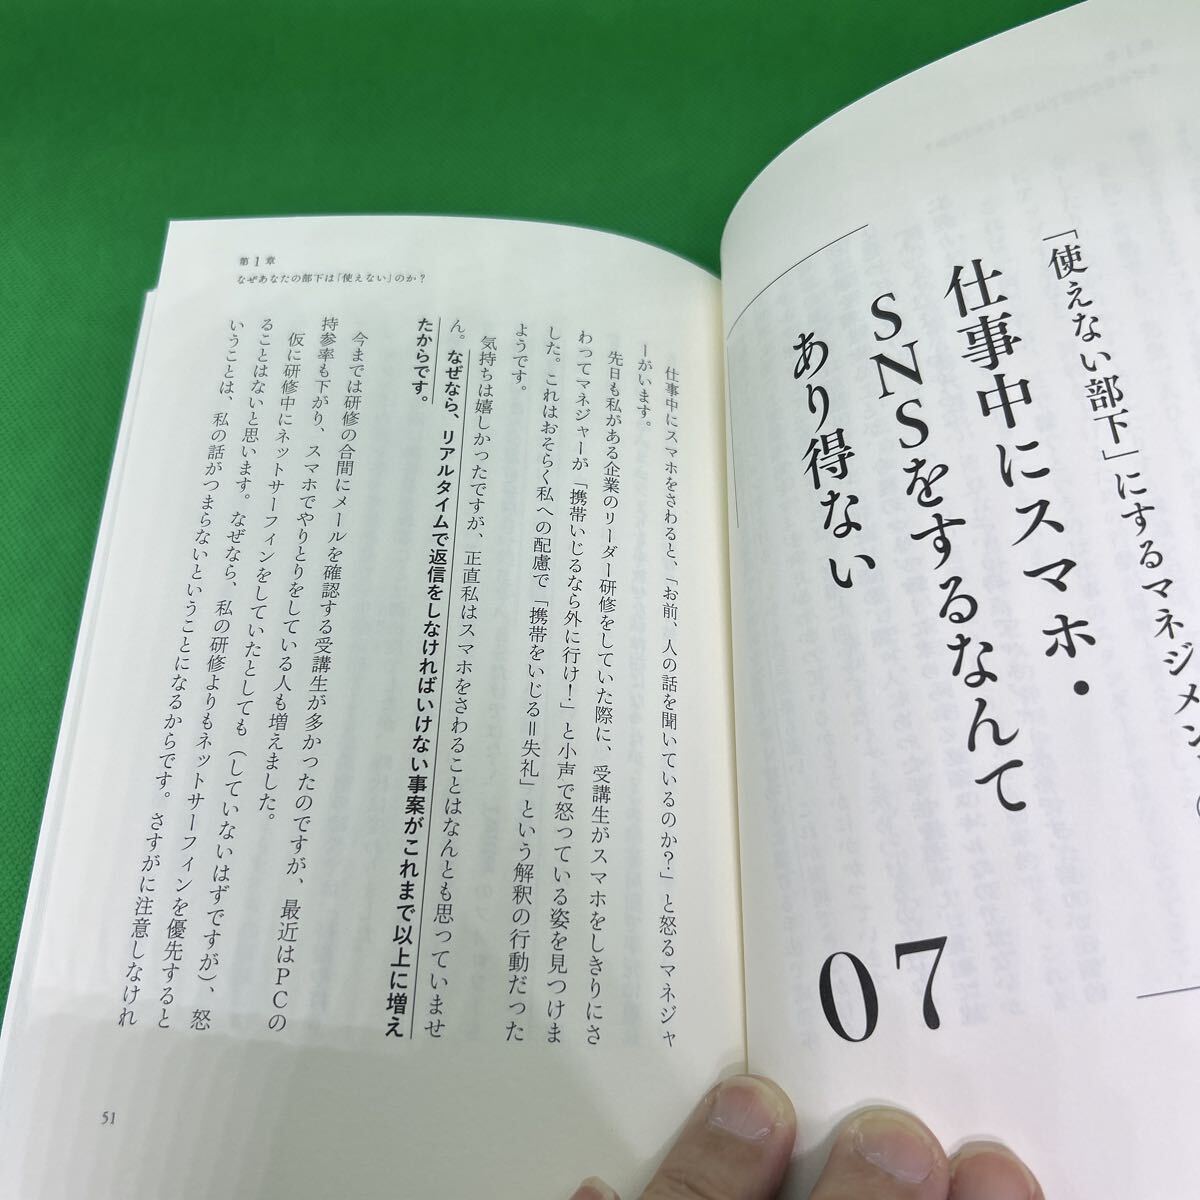 「使えない部下」にするマネジメン
仕事中にスマホ・
SNSをするなんて
あり得ない
07
第1章
なぜあなたの部下は「使えない」のか？
仕事中にスマホをさわると、「お前、人の話を聞いているのか？」と怒るマネジャ
ーがいます。
先日も私がある企業のリーダー研修をしていた際に、受講生がスマホをしきりにさ
わってマネジャーが「携帯いじるなら外に行け！」と小声で怒っている姿を見つけま
した。これはおそらく私への配慮で「携帯をいじる＝失礼」という解釈の行動だった
ようです。
気持ちは嬉しかったですが、正直私はスマホをさわることはなんとも思っていませ
ん。なぜなら、リアルタイムで返信をしなければいけない事案がこれまで以上に増え
たからです。
今までは研修の合間にメールを確認する受講生が多かったのですが、最近はPCの
持参率も下がり、スマホでやりとりをしている人も増えました。
仮に研修中にネットサーフィンをしていたとしても（していないはずですが）、怒
ることはないと思います。なぜなら、私の研修よりもネットサーフィンを優先すると
いうことは、私の話がつまらないということになるからです。さすがに注意しなけれ
51